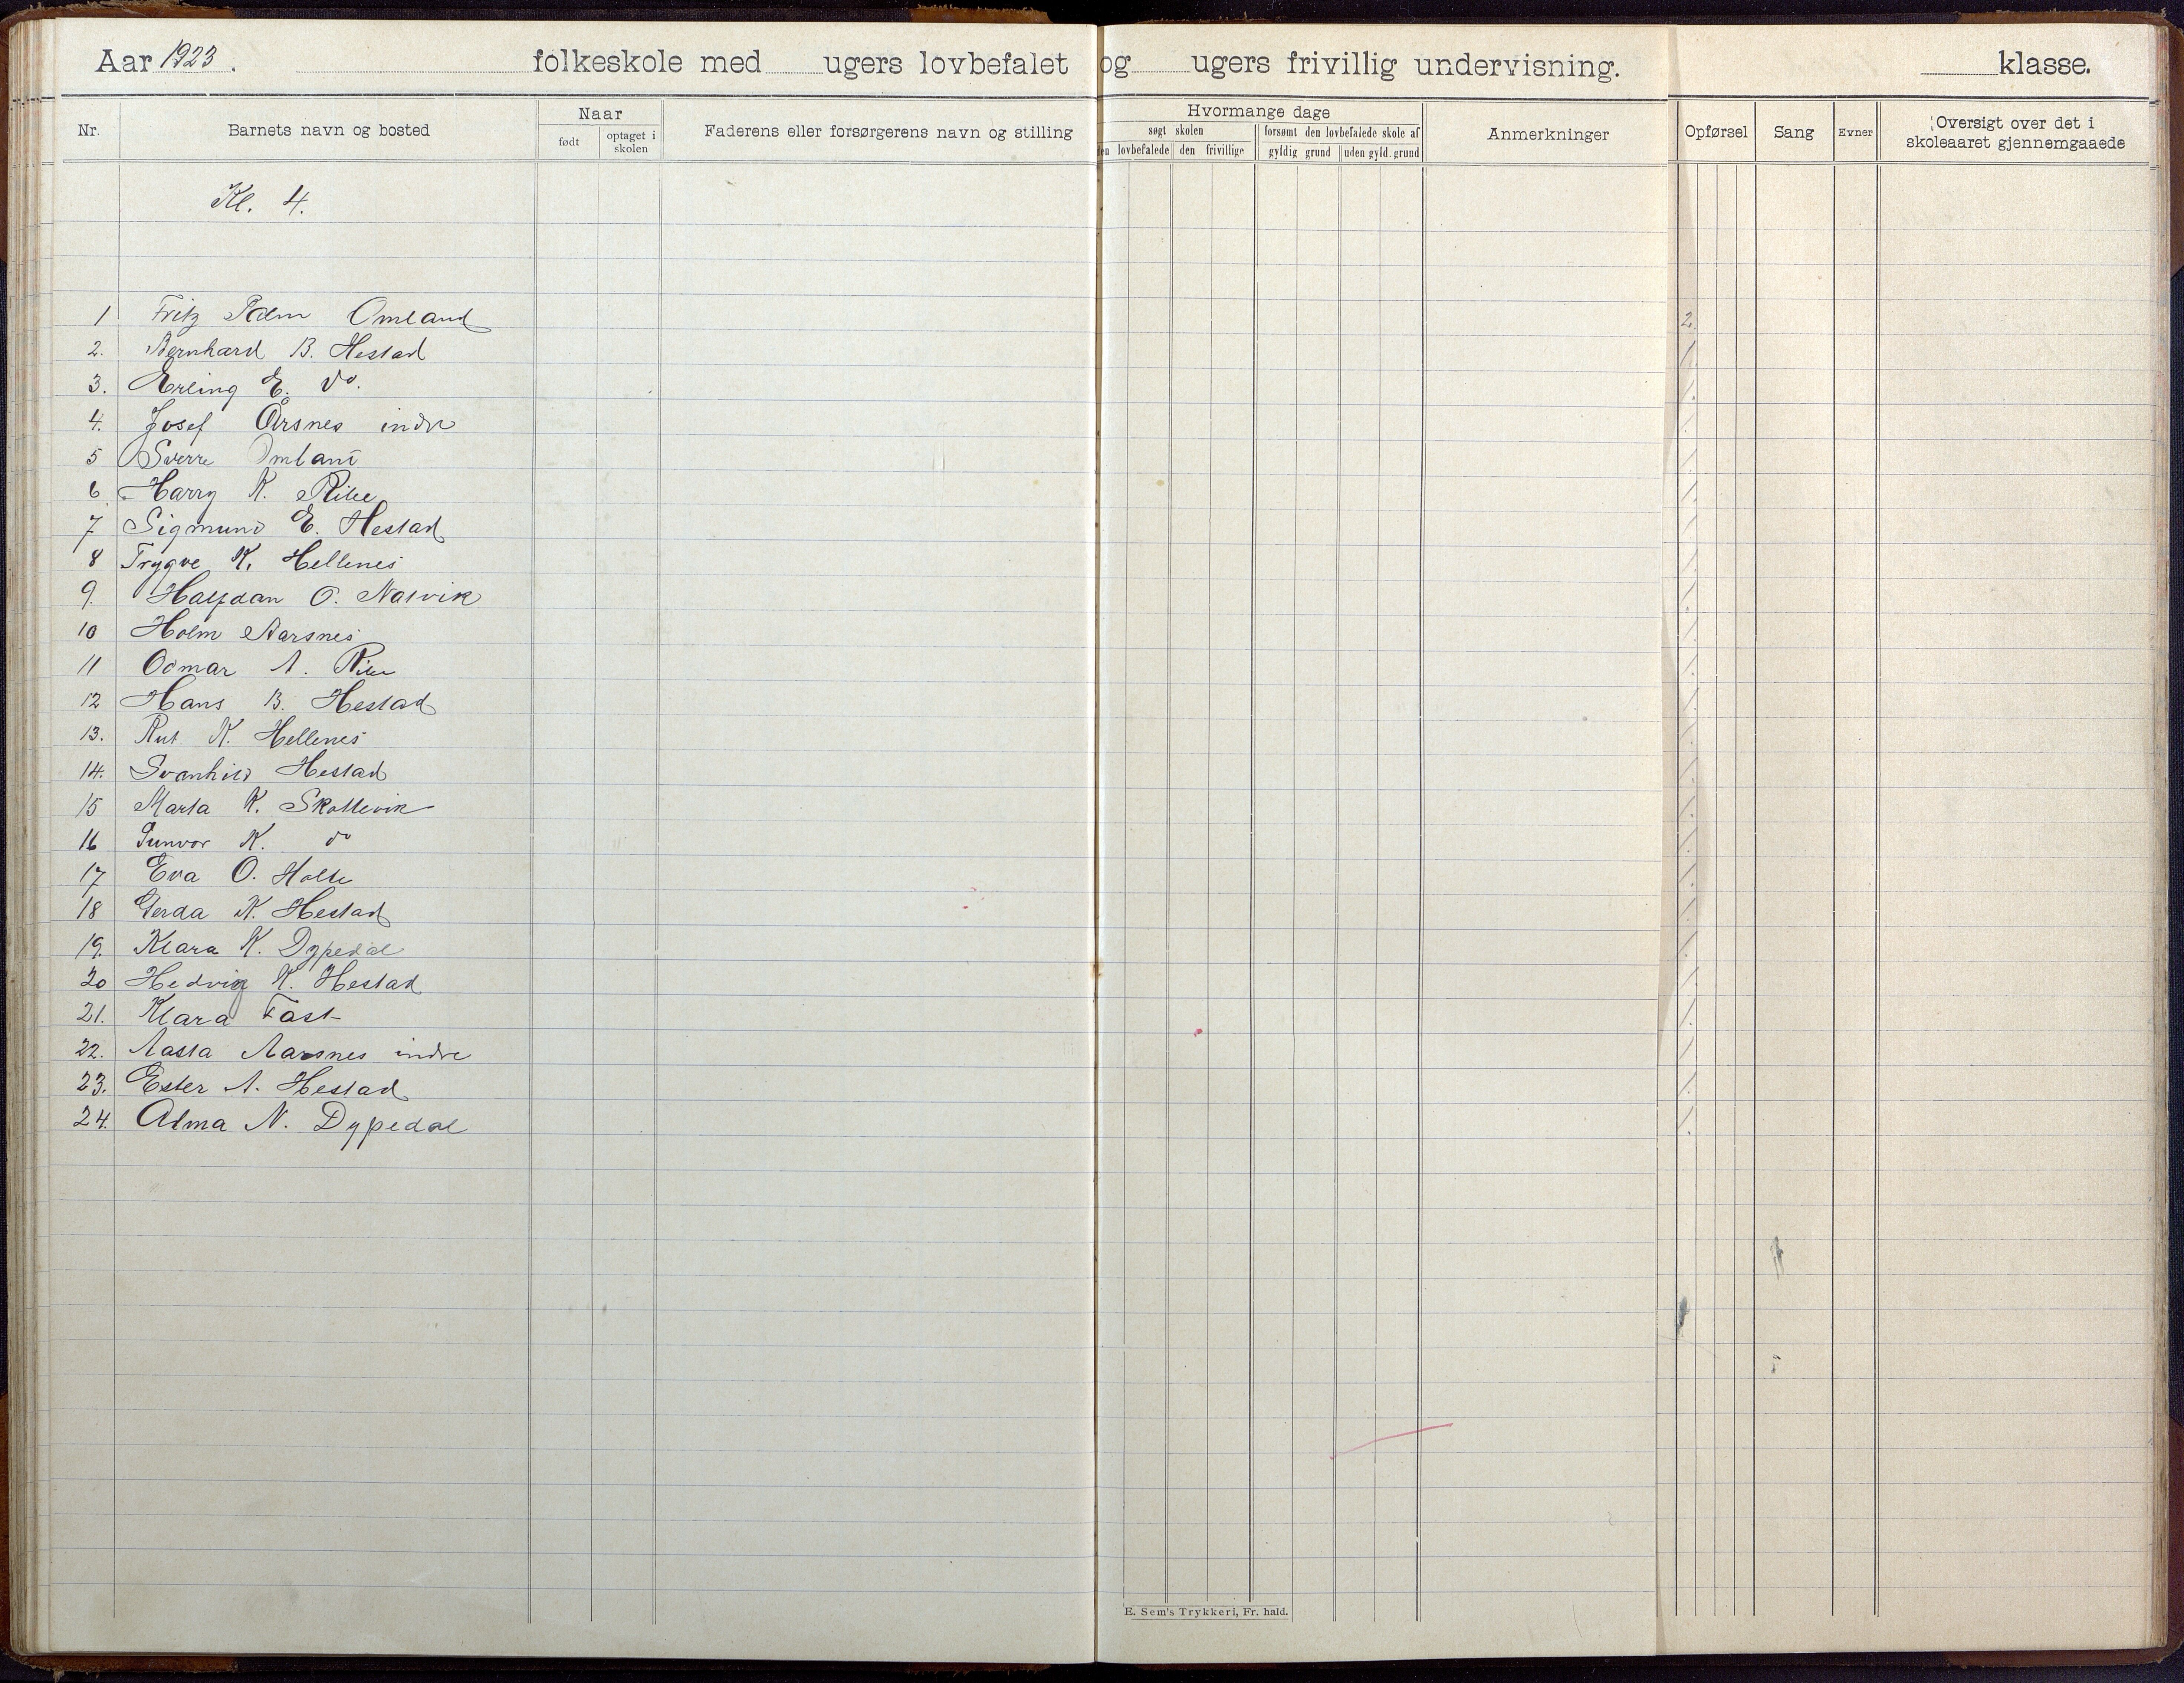 Aar 1923. folkeskole med ugers lovbefalet og ugers frivillig undervisning. klasse.
Nr. Barnets navn og bosted Naar født optaget i skolen Faderens eller forsørgerens navn og stilling Hvormange dage søgt skolen den lovbefalede den frivillige forsømt den lovbefalede skole af gyldig grund uden gyld. grund Anmerkninger Opførsel Sang Evner Oversigt over det i skoleaaret gjennemgaaede
Kl. 4.
1 Fritz Omland 2.
2. Bernhard B. Hestad /.
3. Erling E. do. /.
4. Josef Årsnes indre /.
5 Sverre Omland /.
6 Harry K. Ribe /.
7 Sigmund E. Hestad /.
8 Trygve K. Hellenes /.
9. Halfdan O. Natvik /.
10 Holm Aarsnes /.
11 Odmar A. Ribe /.
12 Hans B. Hestad /.
13. Rut K. Hellenes /.
14. Svanhild Hestad /.
15 Marta K. Skottevik /.
16 Gunvor K. do /.
17 Eva O. Holte /.
18 Gerda K. Hestad /.
19. Klara K. Dypedal /.
20 Hedvig K. Hestad /.
21. Klara Fast /.
22. Aasta Aarsnes indre /.
23. Ester A. Hestad /.
24. Alma N. Dypedal /.
E. Sem's Trykkeri, Fr. hald.